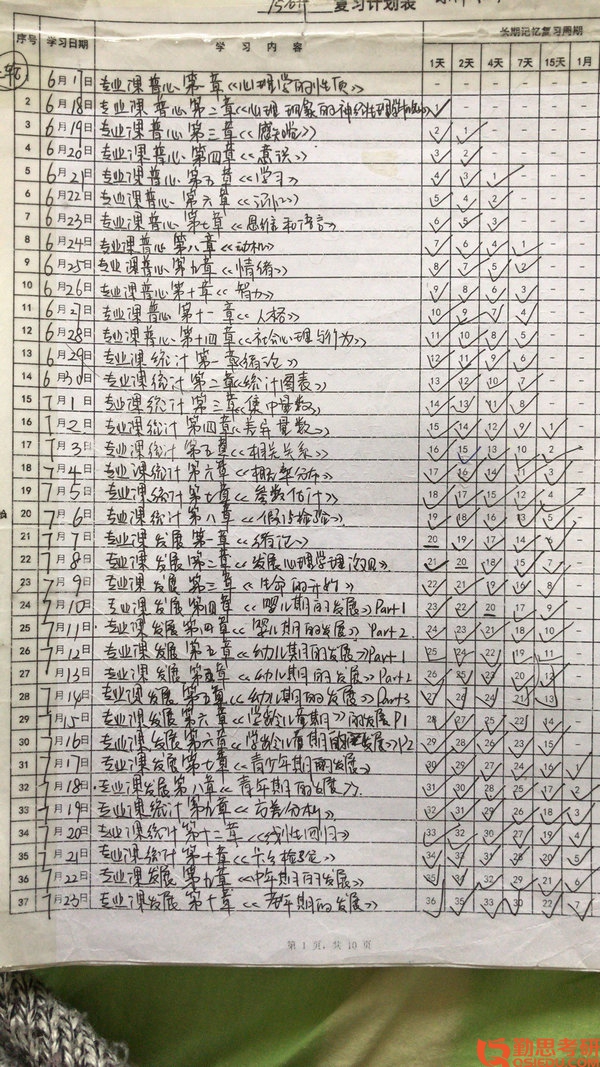 复习计划表
序号 学习日期 学 习 内 容 长期记忆复习周期
1天 2天 4天 7天 15天 1月
1 6月17日 专业课 普心 第一章《心理学的性质》 - - - - - -
2 6月18日 专业课 普心 第二章《心理现象的神经生理学 1 - - - - -
3 6月19日 专业课 普心 第三章《感知觉》 2 1 - - - -
4 6月20日 专业课 普心 第四章《意识》 3 2 - - - -
5 6月21日 专业课 普心 第五章《学习》 4 3 1 - - -
6 6月22日 专业课 普心 第六章《记忆》 5 4 2 - - -
7 6月23日 专业课 普心 第七章《思维和语言》 6 5 3 - - -
8 6月24日 专业课 普心 第八章《动机》 7 6 4 1 - -
9 6月25日 专业课 普心 第九章《情绪》 8 7 5 2 - -
10 6月26日 专业课 普心 第十章《智力》 9 8 6 3 - -
11 6月27日 专业课 普心 第十一章《人格》 10 9 7 4 - -
12 6月28日 专业课 普心 第十四章《社会心理与行为》 11 10 8 5 - -
13 6月29日 专业课 统计 第一章《绪论》 12 11 9 6 - -
14 6月30日 专业课 统计 第二章《统计图表》 13 12 10 7 - -
15 7月1日 专业课 统计 第三章《集中量数》 14 13 11 8 - -
16 7月2日 专业课 统计 第四章《差异量数》 15 14 12 9 1 -
17 7月3日 专业课 统计 第五章《相关关系》 16 15 13 10 2 -
18 7月4日 专业课 统计 第六章《概率分布》 17 16 14 11 3 -
19 7月5日 专业课 统计 第七章《参数估计》 18 17 15 12 4 -
20 7月6日 专业课 统计 第八章《假设检验》 19 18 16 13 5 -
21 7月7日 专业课 发展 第一章《绪论》 20 19 17 14 6 -
22 7月8日 专业课 发展 第二章《发展心理学理论 21 20 18 15 7 -
23 7月9日 专业课 发展 第三章《生命的开始》 22 21 19 16 8 -
24 7月10日 专业课 发展 第四章《婴儿期的发展》Part 1 23 22 20 17 9 -
25 7月11日 专业课 发展 第四章《婴儿期的发展》Part 2 24 23 21 18 10 -
26 7月12日 专业课 发展 第五章《幼儿期的发展》Part 1 25 24 22 19 11 -
27 7月13日 专业课 发展 第五章《幼儿期的发展》Part 2 26 25 23 20 12 -
28 7月14日 专业课 发展 第五章《幼儿期的发展》Part 3 27 26 24 21 13 -
29 7月15日 专业课 发展 第六章《学龄儿童期》的发展 P1 28 27 25 22 14 -
30 7月16日 专业课 发展 第六章《学龄儿童期的发展》P2 29 28 26 23 15 -
31 7月17日 专业课 发展 第七章《青少年期的发展》 30 29 27 24 16 1
32 7月18日 专业课 发展 第八章《青年期的发展》 31 30 28 25 17 2
33 7月19日 专业课 统计 第九章《方差分析》 32 31 29 26 18 3
34 7月20日 专业课 统计 第十二章《线性回归》 33 32 30 27 19 4
35 7月21日 专业课 统计 第十章《卡方检验》 34 33 31 28 20 5
36 7月22日 专业课 发展 第九章《中年期的发展》 35 34 32 29 21 6
37 7月23日 专业课 发展 第十章《老年期的发展》 36 35 33 30 22 7
第 1 页，共 10 页
勤思考研
QSISEDU.COM